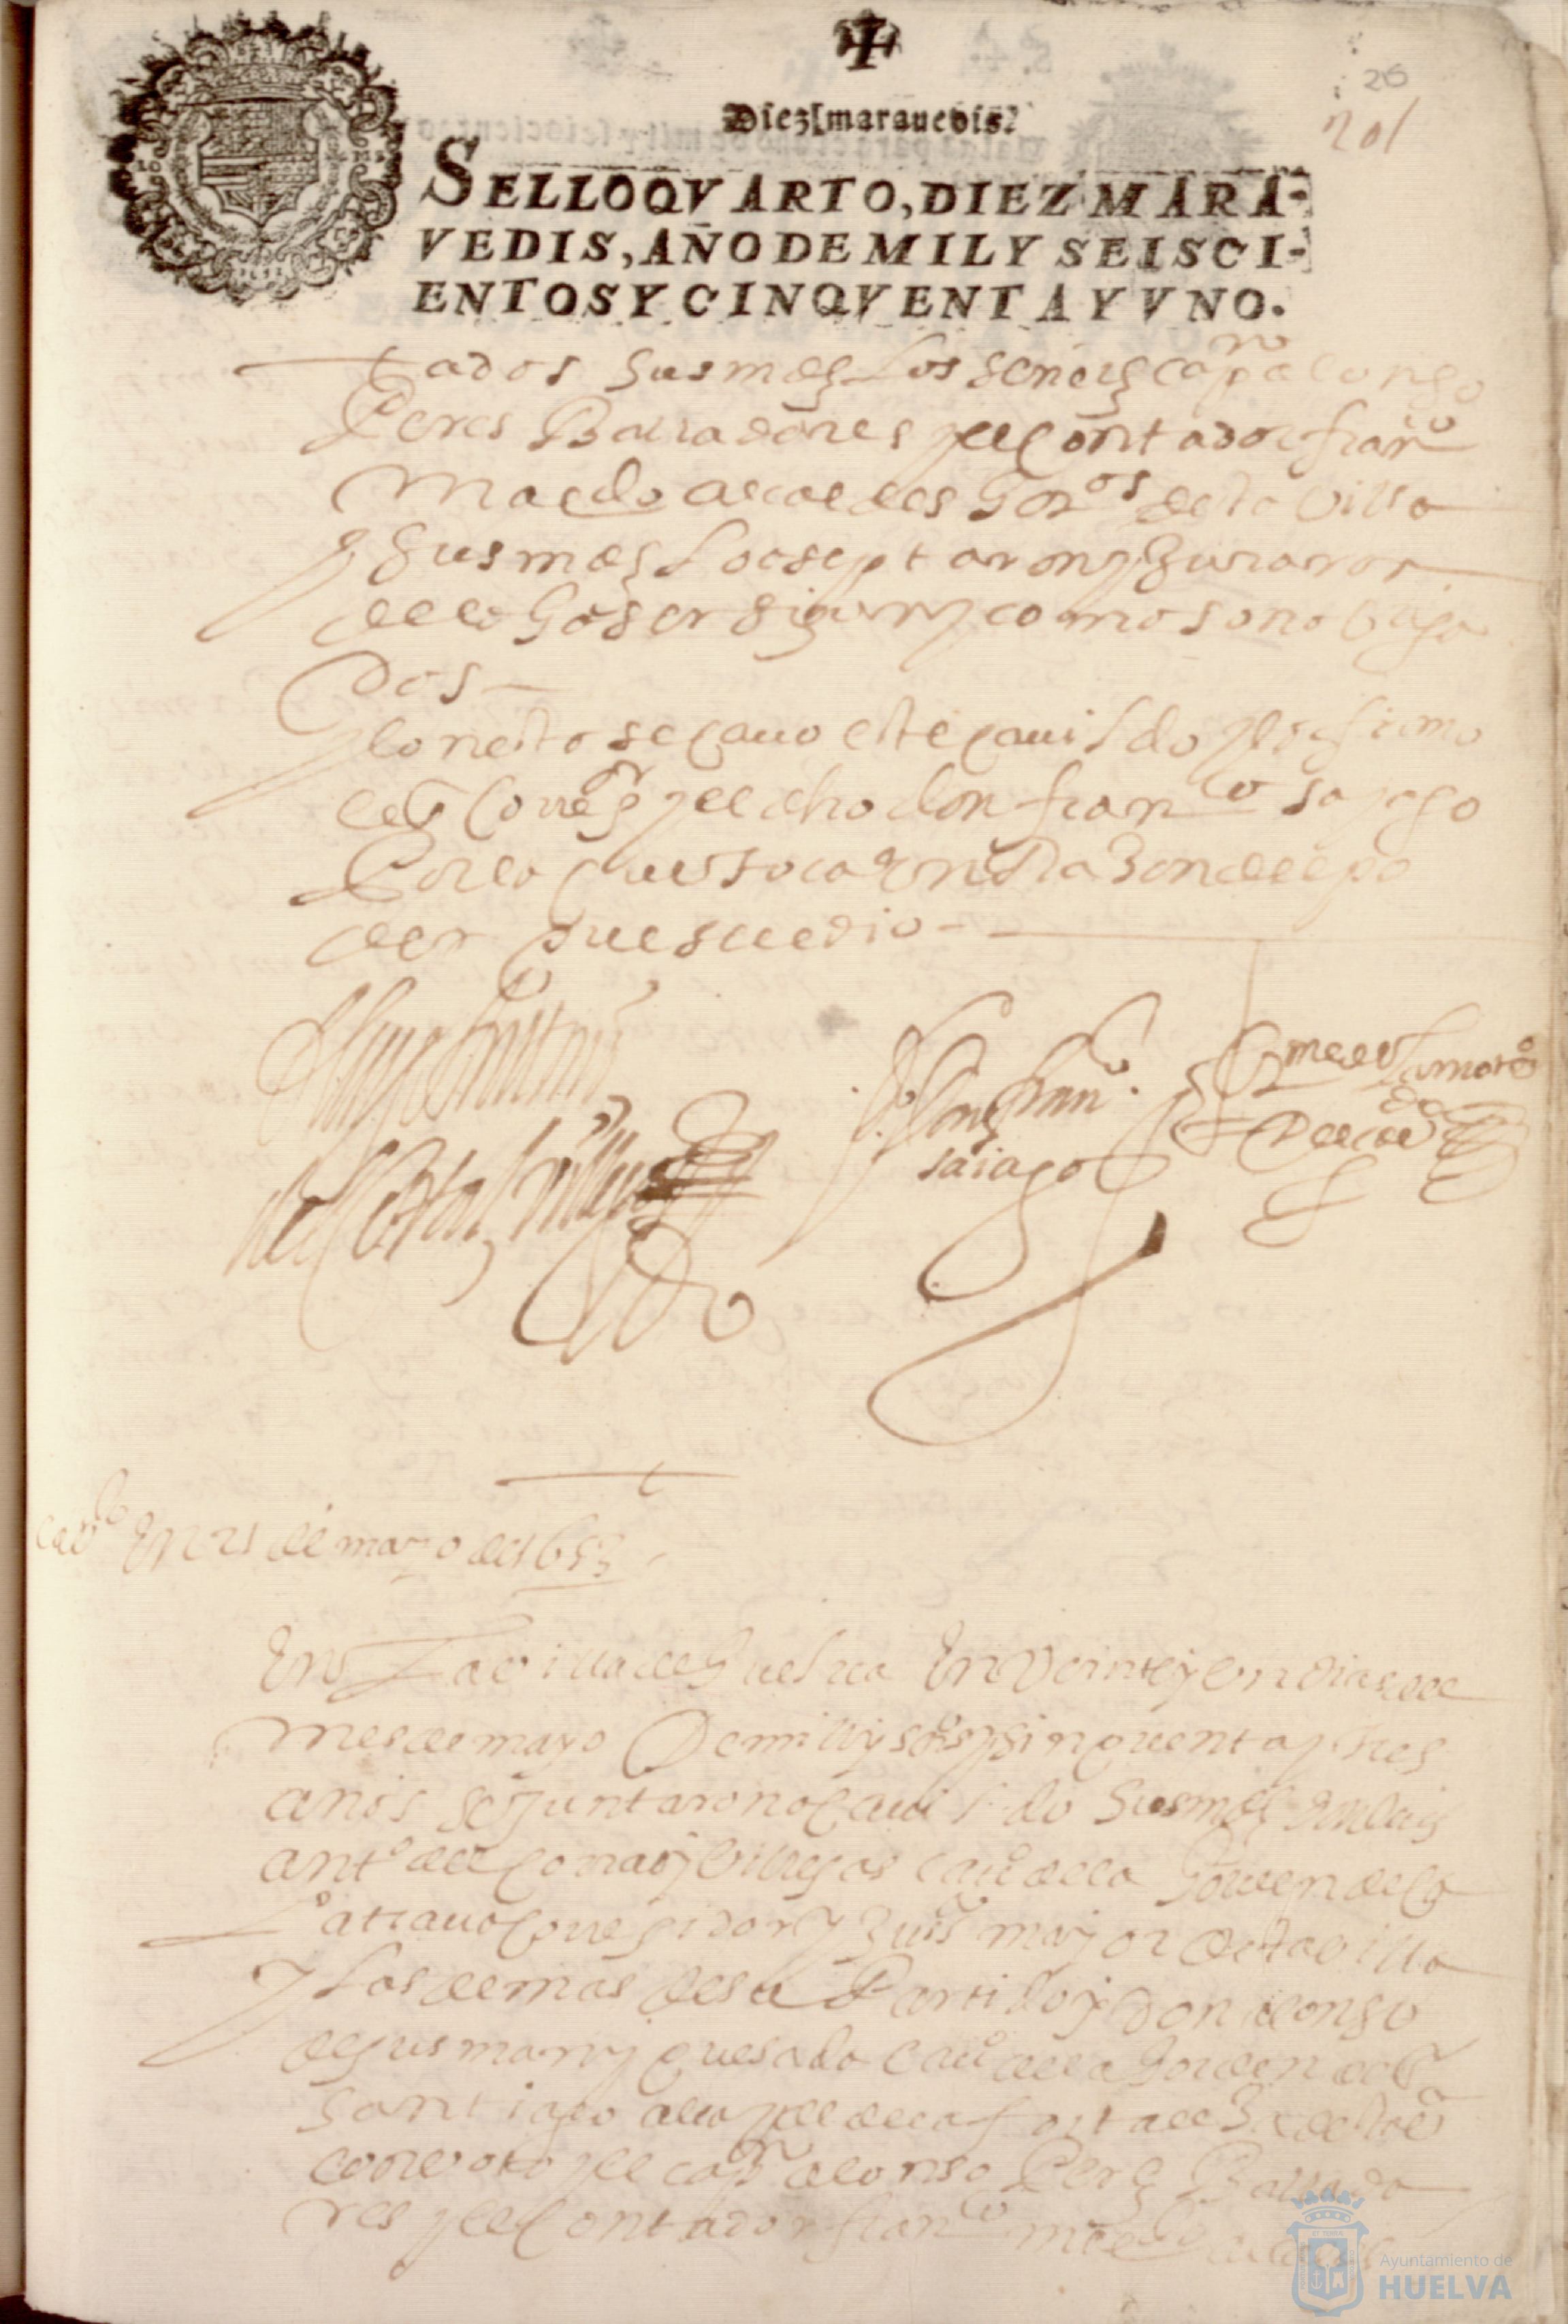 26
201
Diez maravedis.
SELLO QVARTO, DIEZ MARA-
VEDIS, AÑO DE MIL Y SEISCI-
ENTOS Y CINQVENTA Y VNO.
tados sus mds los señores capn alonso
Peres Balladares y el Contador franco
Macdo alcaldes horos desta Villa
y sus mds lo aseptaron y juraron
de lo haser sigun y como son obliga
dos
y con esto se cavo este cavildo y lo firmo
el sr Corregor y el dho don franco sayago
Por lo que toca En Rason del po
der que se le dio
Don Fran.co
saiago
Cavdo En 21 de mayo de 1653
En La villa de Huelva En Veinte y Un dias del
mes de mayo De mill y ssos y sinquenta y tres
años se juntaron a Cavildo sus mds Don luis
anto del Corral y Villegas cavo de la Horden de Ca
Latrava Corregidor y Justa mayor desta villa
y Los demas de su Partido y Don alonso
de gusman y quesada cavo de la Horden de
santiago alcayde de la fortalesa desta va
con voto y el capn alonso Peres Ballada
res y el Contador franco Macdo alcaldes
Ayuntamiento de
HUELVA